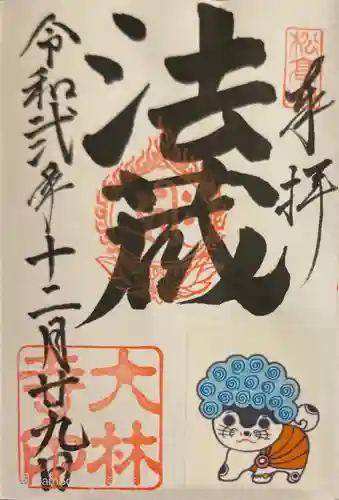 松高
奉拝
法蔵
令和弐年十二月廿九日
大林
寺印